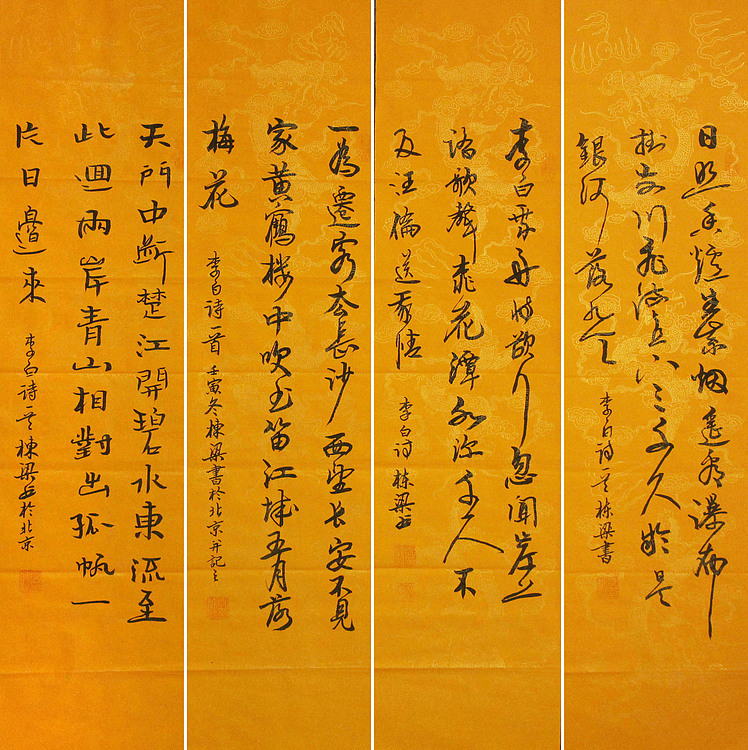 日照香爐生紫烟遥看瀑布
掛前川飛流直下三千尺疑是
銀河落九天
李白诗一首栋梁書
李白乘舟将欲行忽聞岸上
踏歌聲桃花潭水深千尺不
及汪倫送我情
李白诗栋梁书
一為遷客去長沙西望长安不見
家黄鶴楼中吹玉笛江城五月落
梅花
李白诗一首壬寅冬棟梁書於北京并記之
天門中断楚江開碧水東流至
此迴兩岸青山相對出孤帆一
片日邊来
李白诗一首棟梁书於北京